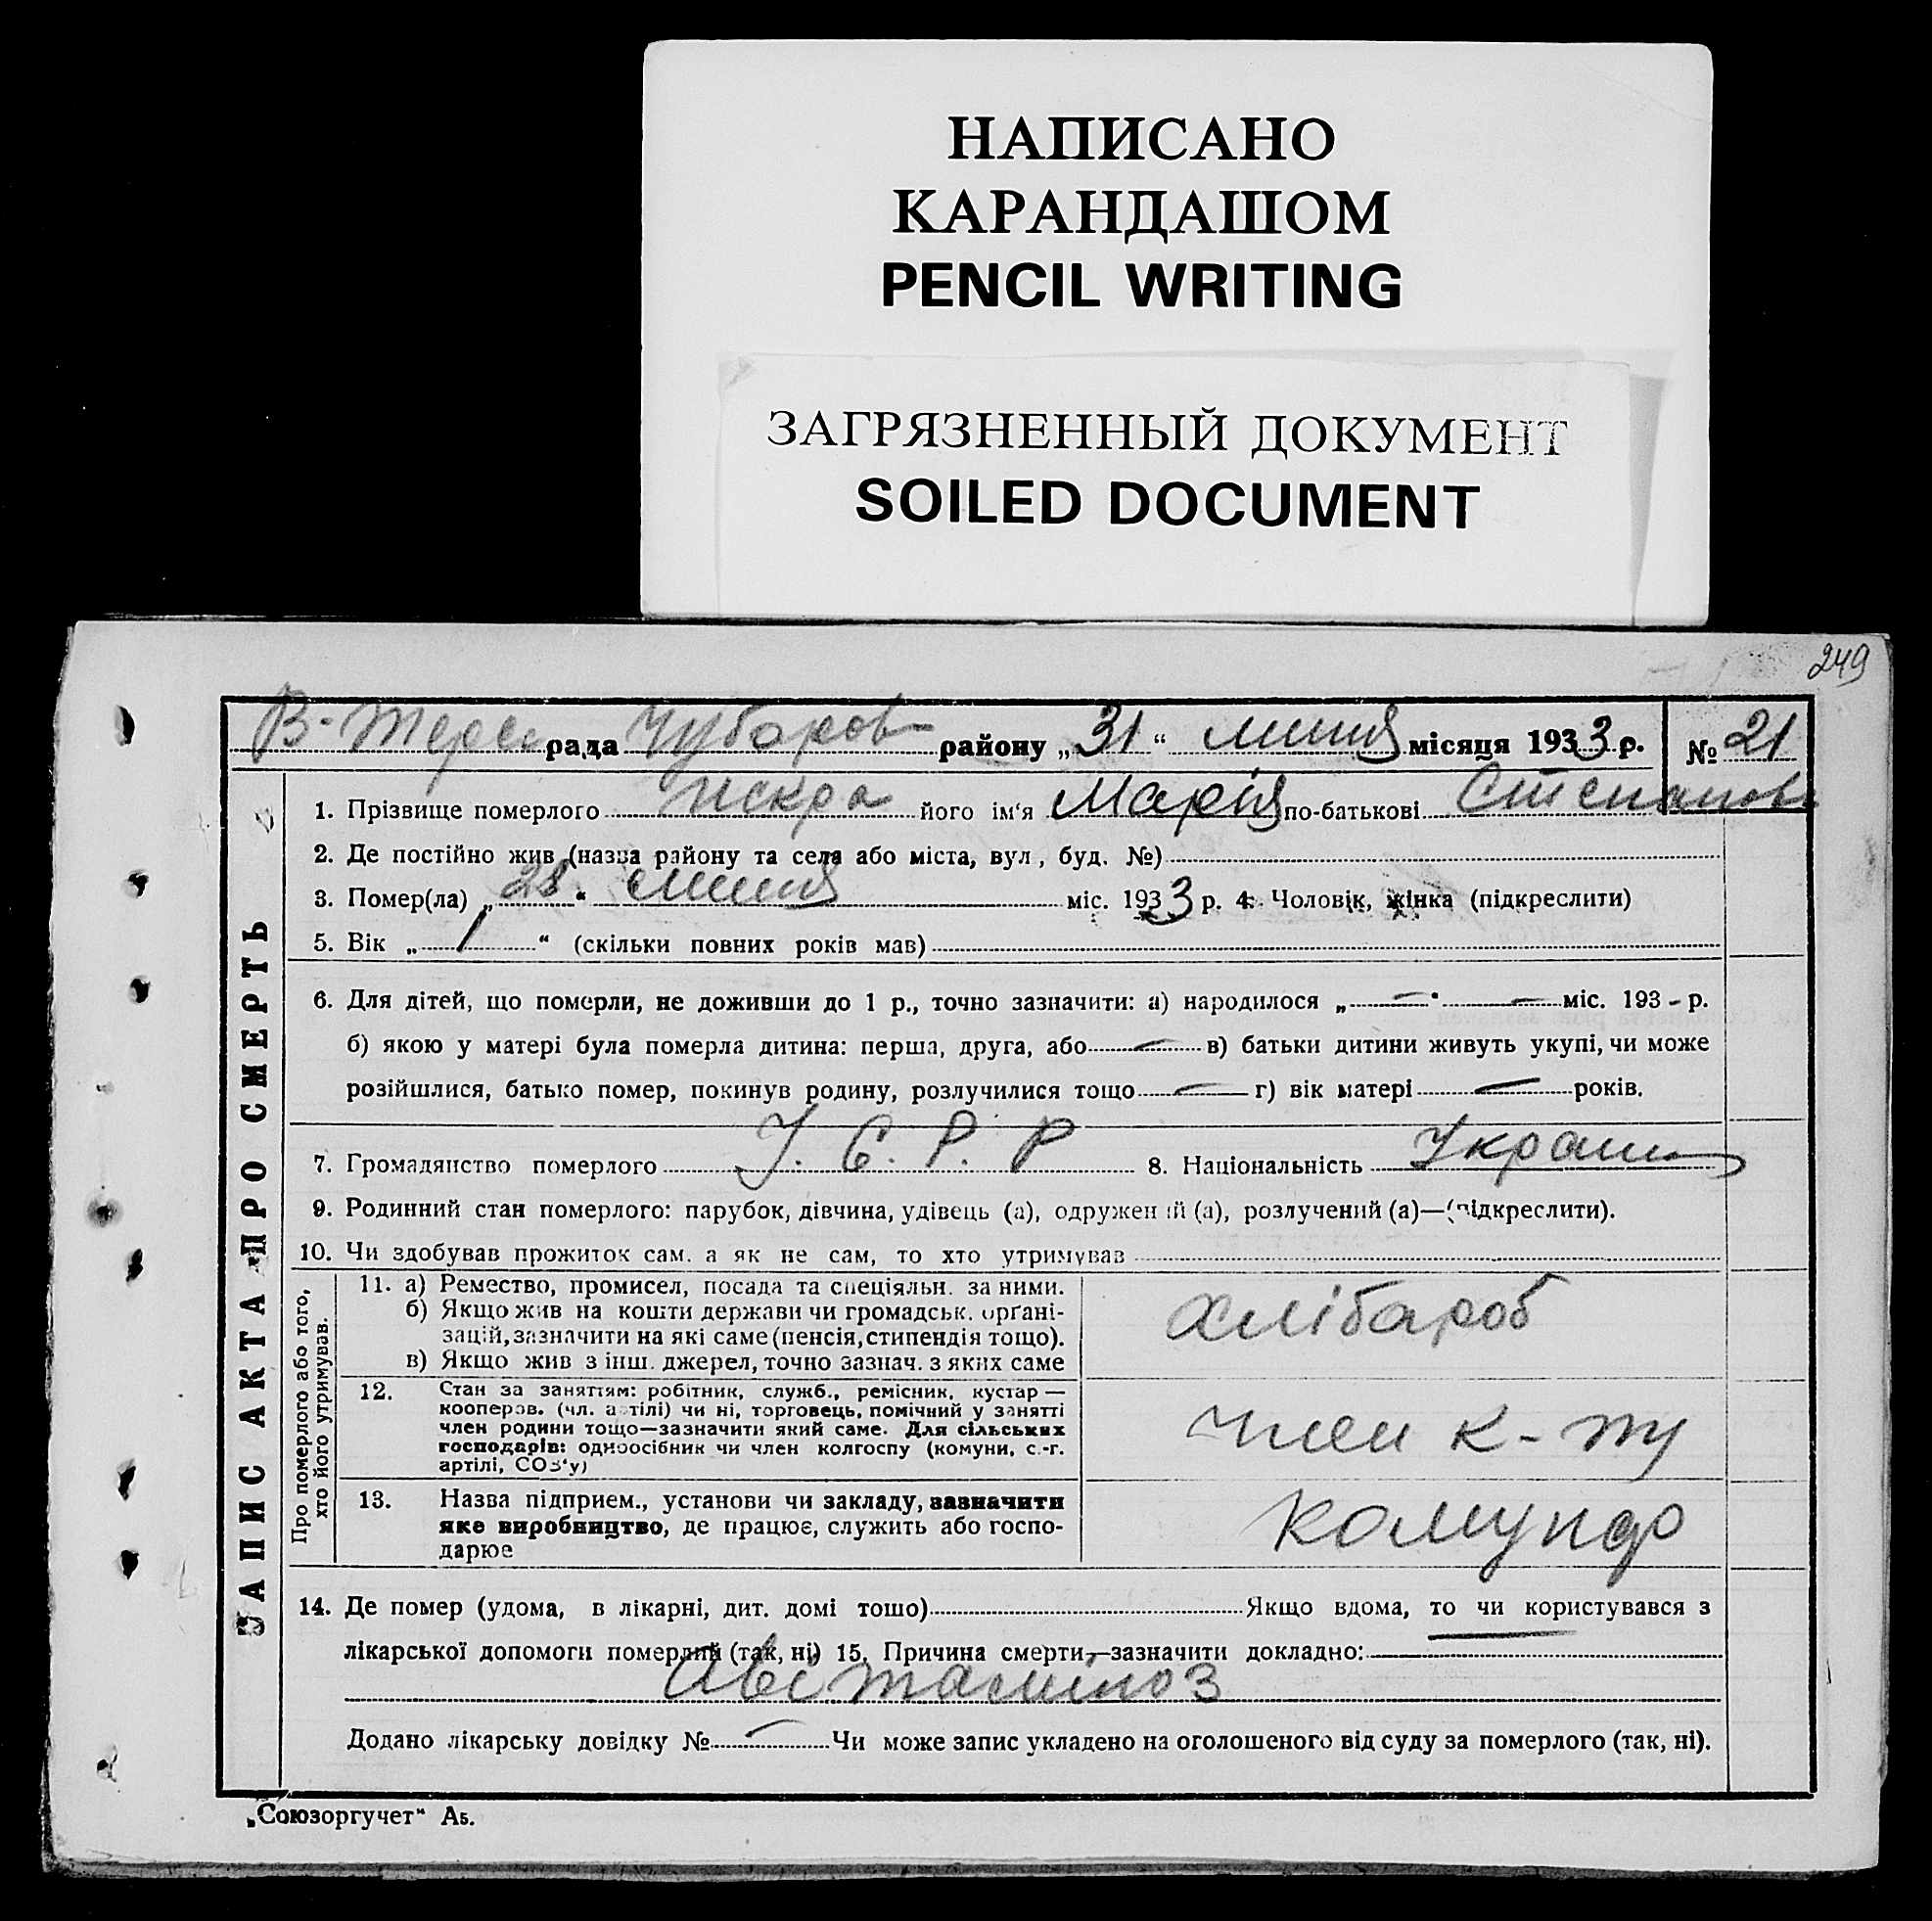 НАПИСАНО
КАРАНДАШОМ
PENCIL WRITING
ЗАГРЯЗНЕННЫЙ ДОКУМЕНТ
SOILED DOCUMENT
249
ЗАПИС АКТА ПРО СМЕРТЬ
В-Терс рада Чубаров району „31“ липня місяця 1933 р. № 21
1. Прізвище померлого Искра його ім‘я Марія по-батькові Степанов
2. Де постійно жив (назва району та села або міста, вул, буд. №)
3. Помер(ла) „28“ липня міс. 1933 р. 4. Чоловік, жінка (підкреслити)
5. Вік „1“ (скільки повних років мав)
6. Для дітей, що померли, не доживши до 1 р., точно зазначити: а) народилося „—“ — міс. 193- р.
б) якою у матері була померла дитина: перша, друга, або — в) батьки дитини живуть укупі, чи може
розійшлися, батько помер, покинув родину, розлучилися тощо — г) вік матері — років.
7. Громадянство померлого У. С. Р. Р 8. Національність Украин
9. Родинний стан померлого: парубок, дівчина, удівець (а), одружений (а), розлучений (а)—(підкреслити).
10. Чи здобував прожиток сам, а як не сам, то хто утримував
Про померлого або того,
хто його утримував.
11. а) Ремество, промисел, посада та спеціяльн. за ними.
б) Якщо жив на кошти держави чи громадськ. органі-
зацій, зазначити на які саме (пенсія, стипендія тощо).
в) Якщо жив з інш. джерел, точно зазнач. з яких саме
хлібароб
12. Стан за заняттям: робітник, служб., ремісник, кустар —
кооперов. (чл. артілі) чи ні, торговець, помічний у занятті
член родини тощо—зазначити який саме. Для сільських
господарів: одноосібник чи член колгоспу (комуни, с.-г.
артілі, СОЗ‘у)
член к-ту
13. Назва підприєм., установи чи закладу, зазначити
яке виробництво, де працює, служить або госпо-
дарює
14. Де помер (удома, в лікарні, дит. домі тошо) Якщо вдома, то чи користувався з
лікарської допомоги померлий (так, ні) 15. Причина смерти,—зазначити докладно:
Авітаміноз
Додано лікарську довідку № — Чи може запис укладено на оголошеного від суду за померлого (так, ні).
„Союзоргучет“ Аб.